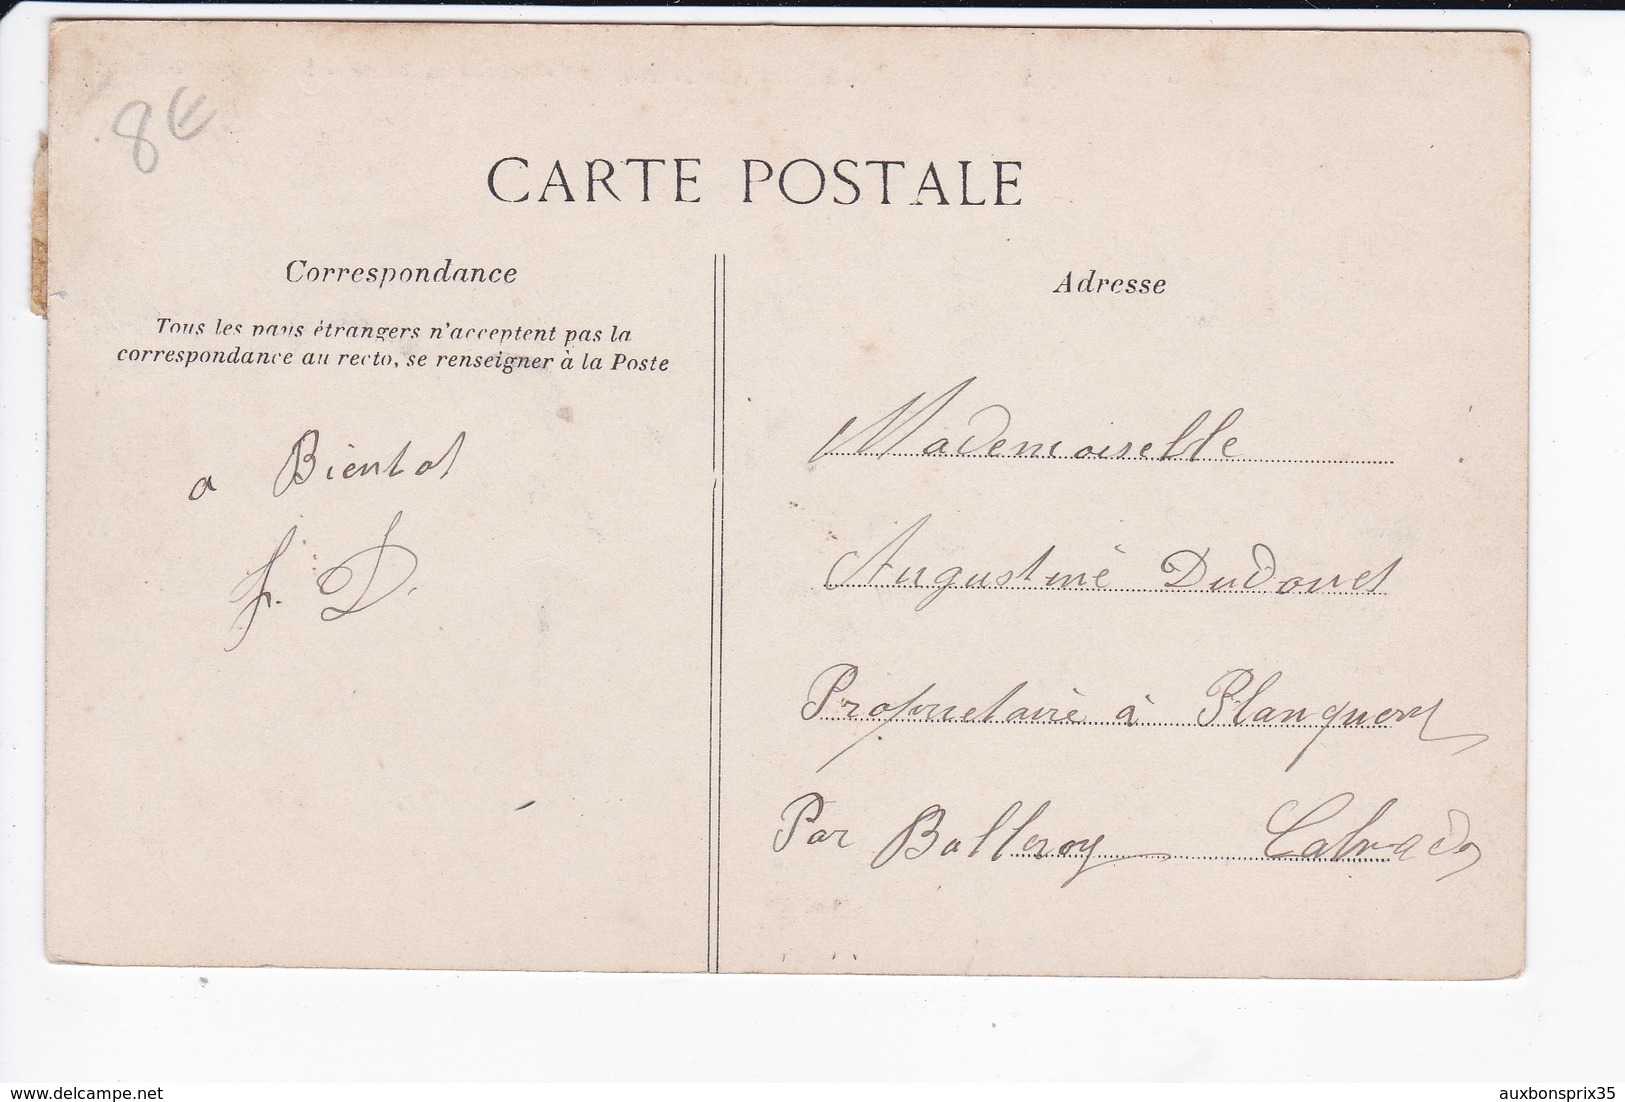 8€
CARTE POSTALE
Correspondance
Tous les pays étrangers n'acceptent pas la
correspondance au recto, se renseigner à la Poste
a Bientot
f. D.
Adresse
Mademoiselle
Augustine Dudouet
Propriétaire à Planquery
Par Balleroy Calvados
www.delcampe.net
auxbonsprix35